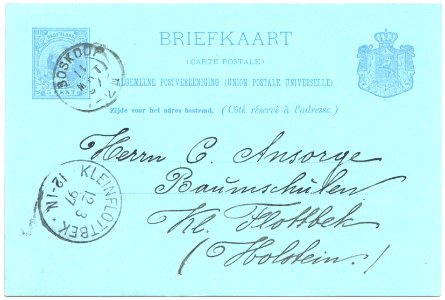 BRIEFKAART
(CARTE POSTALE)
ALGEMEENE POSTVEREENIGING (UNION POSTALE UNIVERSELLE)
Zijde voor het adres bestemd. (Côté réservé à l'adresse.)
NEDERLAND
5 CENT
BOSKOOP
Herrn C. Ansorge
Baumschulen
Kl. Flottbek
(Holstein.)
KLEINFLOTTBEK
12 3
97
12-1N